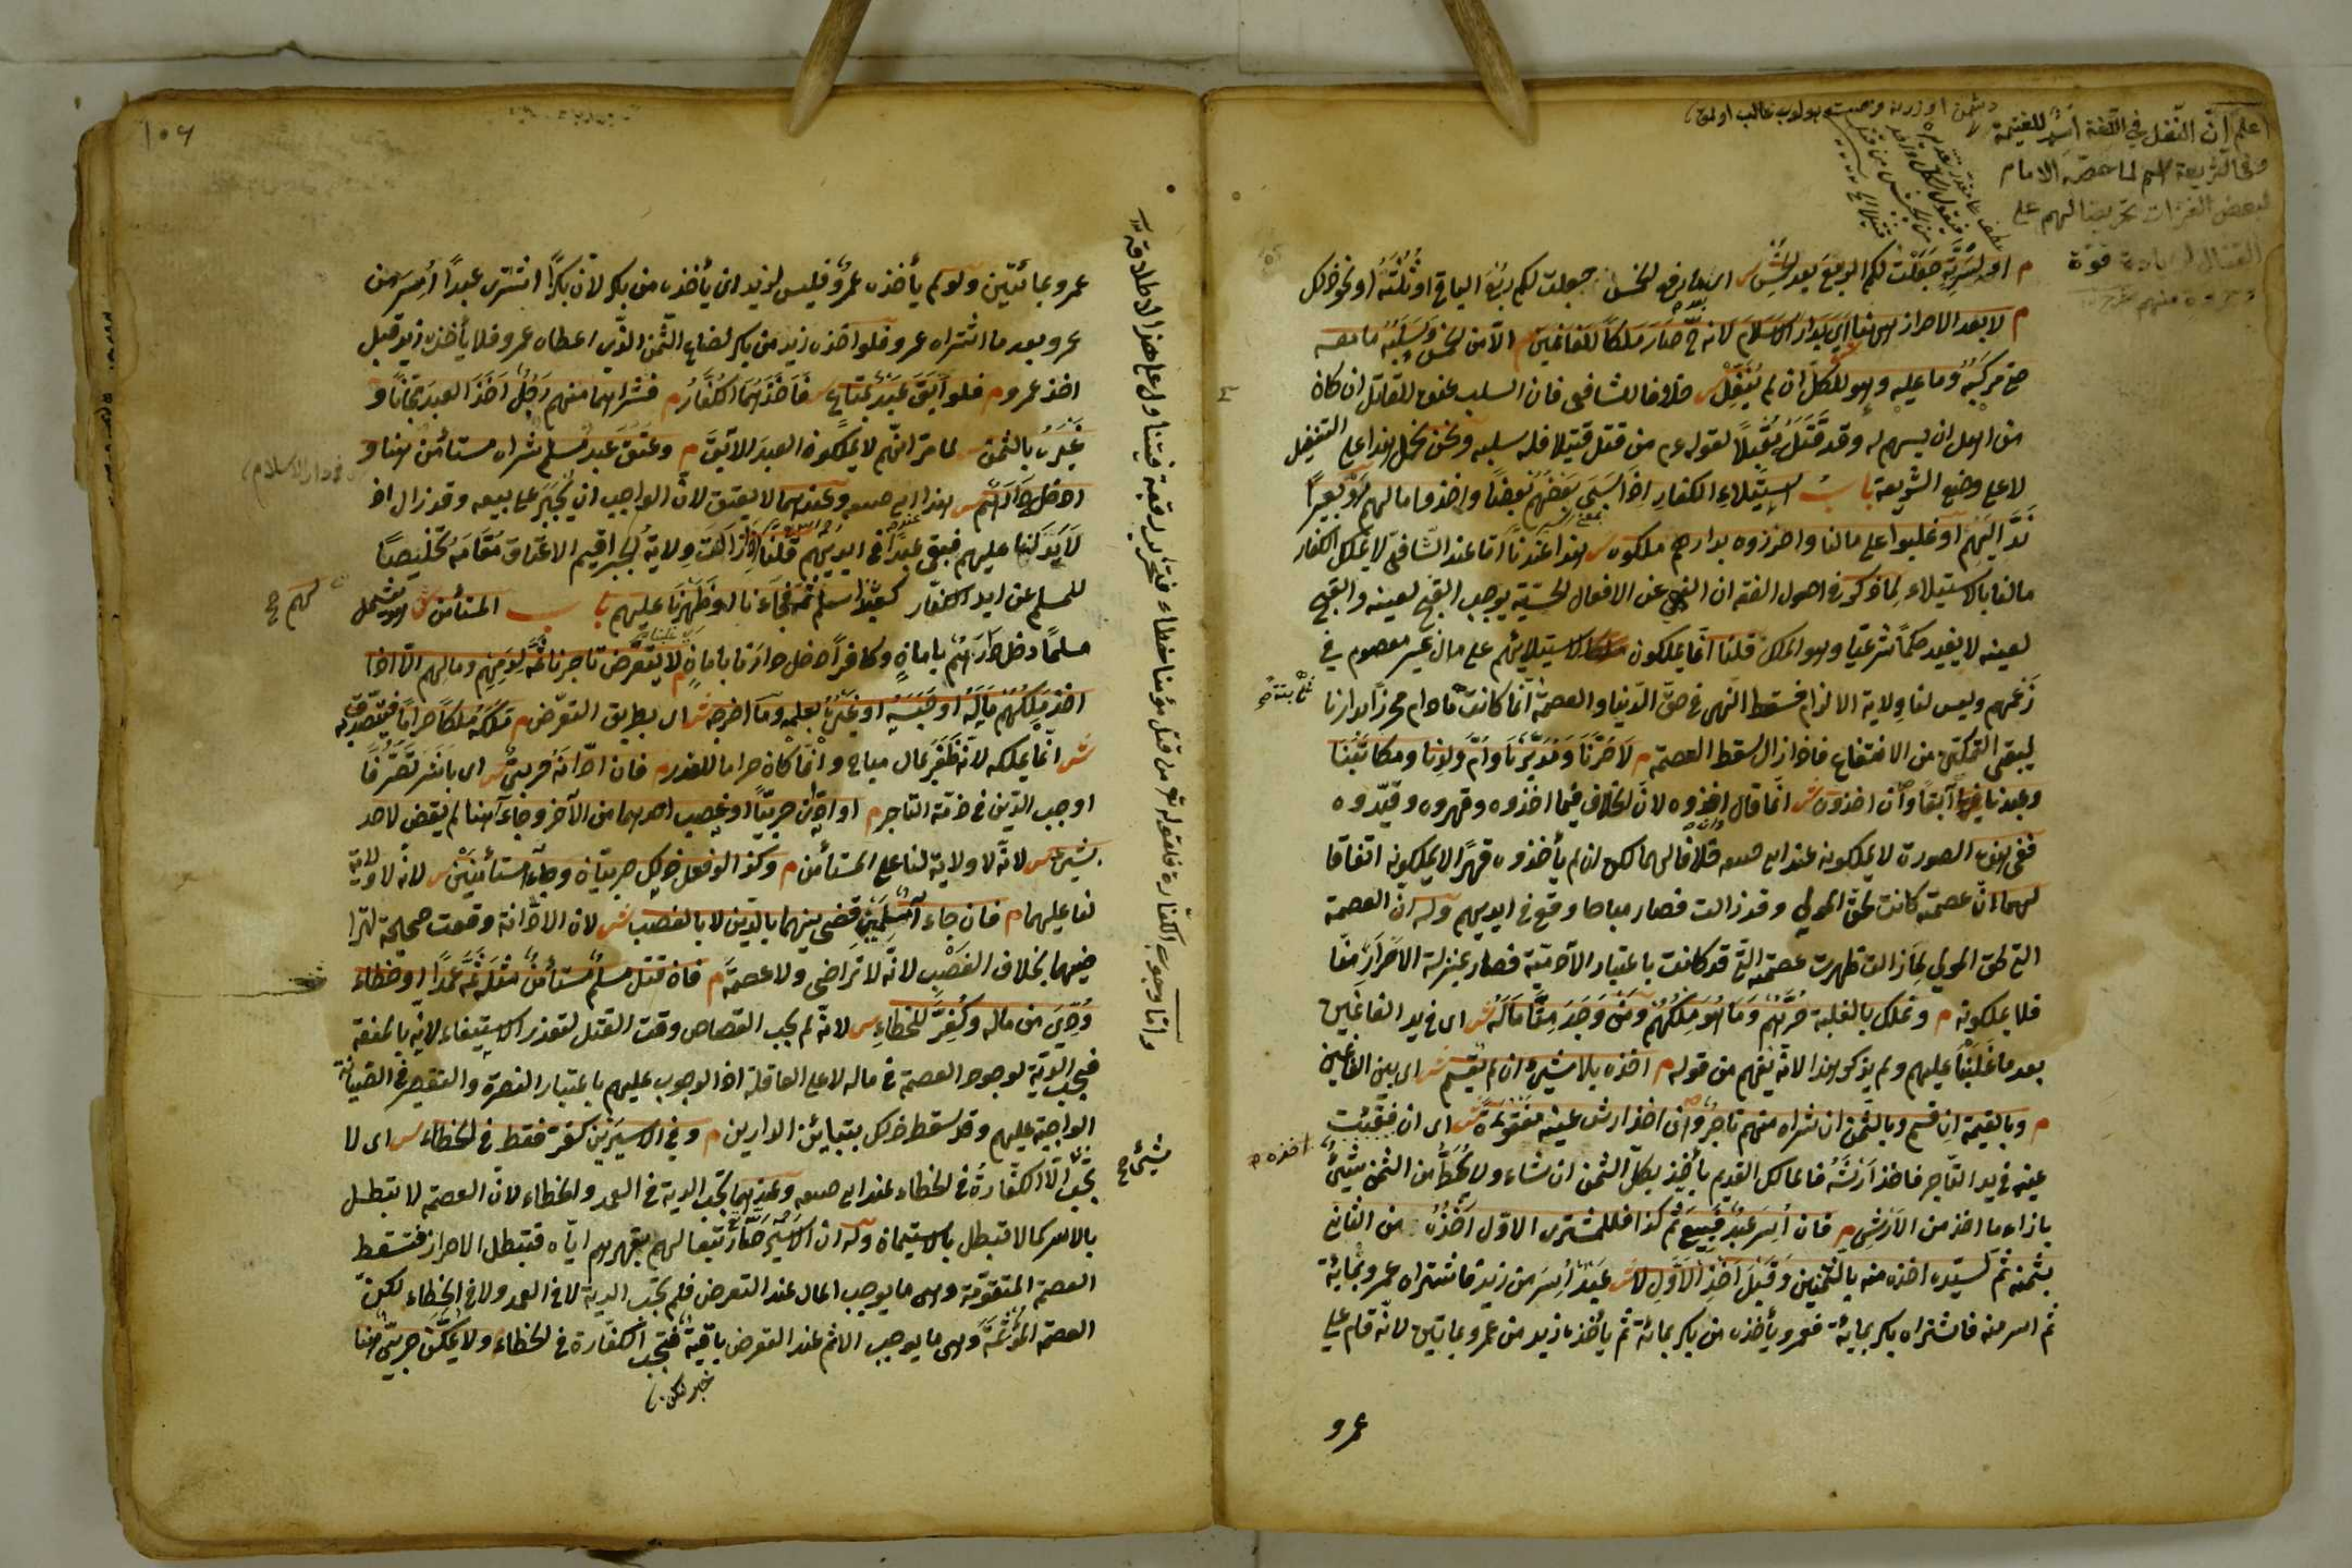 اعلم ان النفل في اللغة اسم للغنيمة
وفي الشريعة اسم لما خصه الامام
لبعض الغزات تحريضا لهم على
القتال لزيادة قوة
م او لسرية جعلت لكم الربع بعد الخمس ش اى بعد ما رفع الخمس جعلت لكم ربع الباقى او ثلثه او نحو ذلك
م لا بعد الاحراز هنا اى بدار الاسلام لانه ح صار ملكا للغانمين م الا من الخمس وسلبه ما معه
حتى مركبه وما عليه وهو للكل ان لم ينفل ش خلافا للشافعى فان السلب عنده للقاتل ان كان
من اهل ان يسهم له وقد قتله مقبلا لقوله عم من قتل قتيلا فله سلبه ونحن نحمل هذا على التنفيل
لا على وضع الشريعة باب استيلاء الكفار اذا سبى بعضهم بعضا واخذوا مالهم او بعيرا
ند اليهم او غلبوا على مالنا واحرزوه بدارهم ملكوه ش هذا عندنا اما عند الشافعى لا يملك الكفار
مالنا بالاستيلاء لما ذكر في اصول الفقه ان النهى عن الافعال الحسية يوجب القبح لعينه والقبح
لعينه لا يفيد حكما شرعيا وهو الملك قلنا انما يملكون باستيلائهم على مال غير معصوم في
زعمهم وليس لنا ولاية الالزام فسقط النهى في حق الدنيا والعصمة انما كانت ما دام محرزا بدارنا
ليبقى التمكن من الانتفاع فاذا زال سقط العصمة م لا حرنا ومدبرنا وام ولدنا ومكاتبنا
وعبدنا آبقا وان اخذوه ش انما قال اخذوه لان الخلاف فيما اخذوه وقهروه وقيدوه
ففى هذه الصورة لا يملكونه عند ابى حنيفة خلافا لهما لكن ان لم يأخذوه قهرا لا يملكونه اتفاقا
لهما ان عصمته كانت لحق المولى وقد زالت فصار مباحا وقع في ايديهم وله ان العصمة
التى لحق المولى لما زالت ظهرت عصمته التى قد كانت باعتبار الآدمية فصار بمنزلة الاحرار منا
فلا يملكونه م ونملك بالغلبة حرهم وما هو ملكهم ومن وجد منا ماله ش اى في يد الغانمين
بعد ما غلبنا عليهم ولم يذكر هذا لانه يفهم من قوله م اخذه بلا شىء ان لم يقسم ش اى بين الغانمين
م وبالقيمة ان قسم وبالثمن ان شراه منهم تاجر وان اخذ ارش عينه مفقوءة ش اى ان فقئت
عينه في يد التاجر فاخذ ارشه فالمالك القديم يأخذ بكل الثمن ان شاء ولا يحط من الثمن شىء
بازاء ما اخذ من الارش م فان اسر عبد فبيع ثم كذا فللمشترى الاول اخذه من الثانى
بثمنه ثم لسيده اخذه منه بالثمنين وقبل اخذ الاول لا ش عبد اسر من زيد فاشتراه عمرو بمائة
ثم اسر منه فاشتراه بكر بمائة فعمرو يأخذه من بكر بمائة ثم يأخذه زيد من عمرو بمائتين لانه قام على
عمرو
١٠٦
عمرو بمائتين ولو لم يأخذه عمرو فليس لزيد ان يأخذه من بكر لان بكرا اشترى عبدا اسر من
عمرو بعد ما اشتراه عمرو فلو اخذه زيد من بكر لضاع الثمن الذى اعطاه عمرو فلا يأخذه زيد قبل
اخذ عمرو م فلو ابق عبد بمتاع ش فاخذهما الكفار م فشراهما منهم رجل اخذ العبد مجانا و
غيره بالثمن ش لما مر انهم لا يملكون العبد الآبق م وعتق عبد مسلم شراه مستأمن هنا و
ادخله دارهم ش هذا عند ابى حنيفة وعندهما لا يعتق لان الواجب ان يجبر على بيعه وقد زال اذ
لا يد لنا عليهم فبقى عبدا في ايديهم قلنا اذا زالت ولاية الجبر اقيم الاعتاق مقامه تخليصا
للمسلم عن ايد الكفار كعبد اسلم ثمه فجاءنا او ظهرنا عليهم باب المستأمن ش هو يشمل
مسلما دخل دارهم بامان وكافرا دخل دارنا بامان م لا يتعرض تاجرنا ثمه لدمهم ومالهم الا اذا
اخذ ملكهم ماله او حبسه او غيره بعلمه وما اخرجه ش اى بطريق التعرض م ملكه ملكا حراما فيتصدق به
ش انما يملكه لانه ظفر بمال مباح وانما كان حراما للغدر م فان ادانه حربى ش اى باشر تصرفا
اوجب الدين في ذمة التاجر م او ادان حربيا او غصب احدهما من الآخر وجاءآ هنا لم يقض لاحد
بشىء ش لانه لا ولاية لنا على المستأمن م وكذا لو فعل ذلك حربيان وجاءآ مستأمنين ش لانه لا ولاية
لنا عليهما م فان جاءآ مسلمين قضى بينهما بالدين لا بالغصب ش لان الادانة وقعت صحيحة لتراضيهما
بخلاف الغصب لانه لا تراضى ولا عصمة م فان قتل مسلم مستأمن مثله ثمه عمدا او خطاء
ودى من ماله وكفر للخطاء ش لانه لم يجب القصاص وقت القتل لتعذر الاستيفاء لانه بالمنعة
فيجب الدية لوجود العصمة في ماله لا على العاقلة اذ الوجوب عليهم باعتبار النصرة والتقصير في الصيانة
الواجبة عليهم وقد سقط ذلك بتباين الدارين م وفي الاسيرين كفر فقط في الخطاء ش اى لا
تجب الا الكفارة في الخطاء عند ابى حنيفة وعندهما تجب الدية في العمد والخطاء لان العصمة لا تبطل
بالاسر كما لا تبطل بالاستيمان وله ان الاسير صار تبعا لهم بقهرهم اياه فتبطل الاحراز فتسقط
العصمة المتقومة وهى ما يوجب المال عند التعرض فلم تجب الدية لا في العمد ولا في الخطاء لكن
العصمة المؤثمة وهى ما يوجب الاثم عند التعرض باقية فتجب الكفارة في الخطاء ولا يمكن حربى هنا
خبر لكن
في دار الاسلام
واما وجوب الكفارة فلقوله تع ومن قتل مؤمنا خطاء فتحرير رقبة فيتناول على هذا الاطلاقة